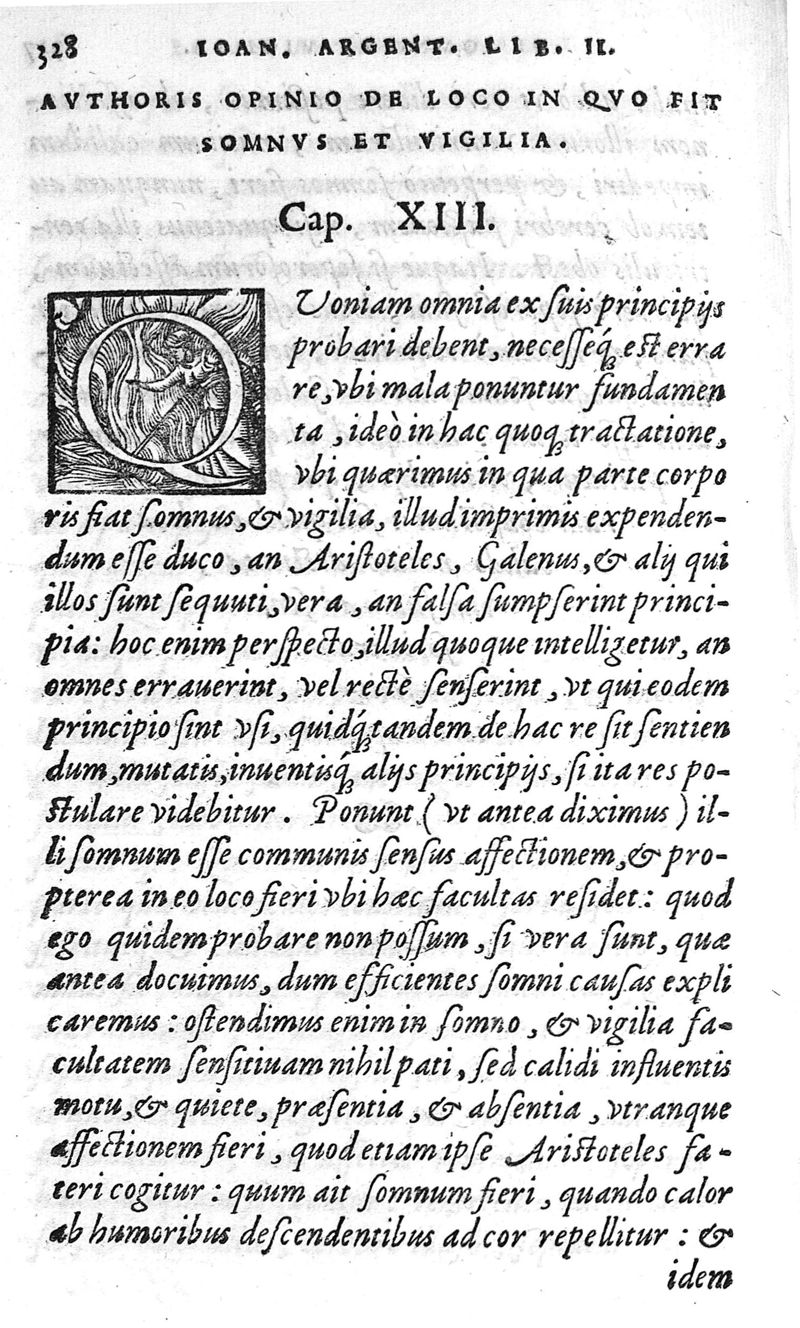 328 IOAN. ARGENT. LIB. II.
AVTHORIS OPINIO DE LOCO IN QVO FIT
SOMNVS ET VIGILIA.
Cap. XIII.
QVoniam omnia ex ſuis principijs
probari debent, neceſſeq́; eſt erra
re, vbi mala ponuntur fundamen
ta, ideò in hac quoq; tractatione,
vbi quærimus in qua parte corpo
ris fiat ſomnus, & vigilia, illud imprimis expenden-
dum eſſe duco, an Ariſtoteles, Galenus, & alij qui
illos ſunt ſequuti, vera, an falſa ſumpſerint princi-
pia: hoc enim perſpecto, illud quoque intelligetur, an
omnes errauerint, vel rectè ſenſerint, vt qui eodem
principio ſint vſi, quidq́; tandem de hac re ſit ſentien
dum, mutatis, inuentisq́; alijs principijs, ſi ita res po-
ſtulare videbitur. Ponunt (vt antea diximus) il-
li ſomnum eſſe communis ſenſus affectionem, & pro-
pterea in eo loco fieri vbi hæc facultas reſidet: quod
ego quidem probare non poſſum, ſi vera ſunt, quæ
antea docuimus, dum efficientes ſomni cauſas expli
caremus: oſtendimus enim in ſomno, & vigilia fa-
cultatem ſenſitiuam nihil pati, ſed calidi influentis
motu, & quiete, præſentia, & abſentia, vtranque
affectionem fieri, quod etiam ipſe Ariſtoteles fa-
teri cogitur: quum ait ſomnum fieri, quando calor
ab humoribus deſcendentibus ad cor repellitur: &
idem